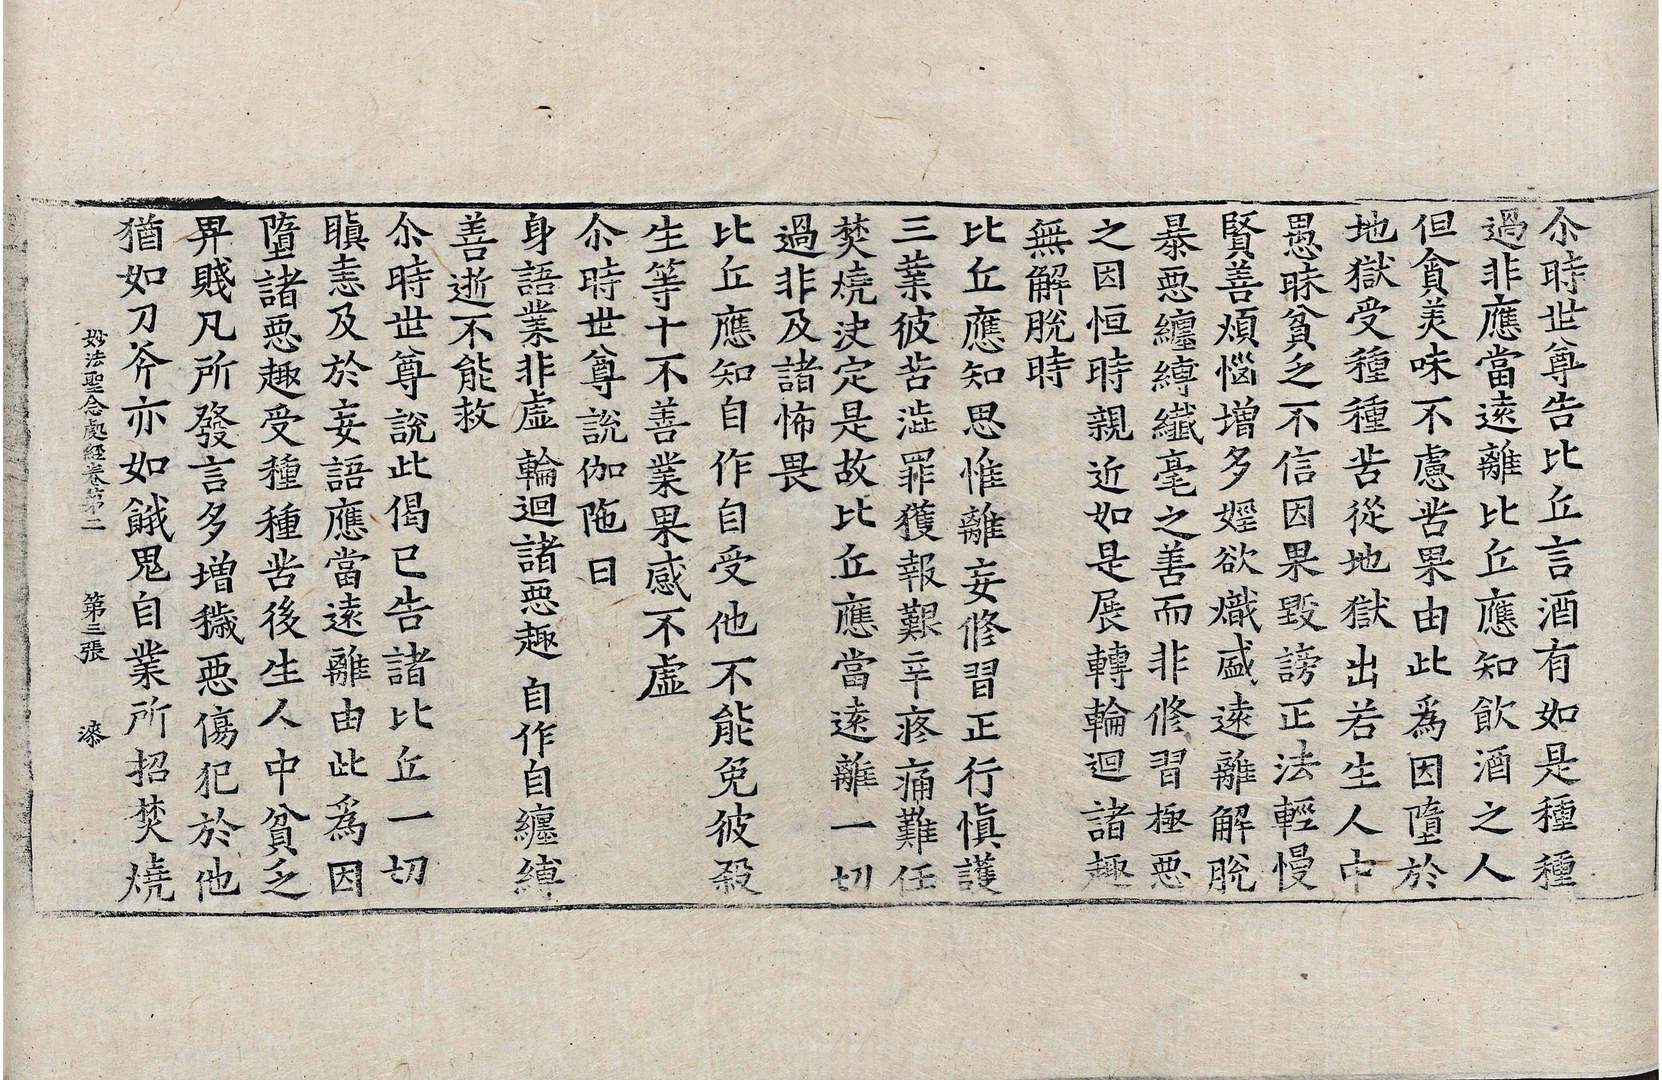 尒時世尊告比丘言酒有如是種種
過非應當遠離比丘應知飲酒之人
但貪美味不慮苦果由此爲因墮於
地獄受種種苦從地獄出若生人中
愚昧貧乏不信因果毀謗正法輕慢
賢善煩惱增多婬欲熾盛遠離解脫
暴惡纏縛纖毫之善而非修習極惡
之因恒時親近如是展轉輪迴諸趣
無解脫時
比丘應知思惟離妄修習正行愼護
三業彼苦澁罪獲報艱辛疼痛難任
焚燒決定是故比丘應當遠離一切
過非及諸怖畏
比丘應知自作自受他不能免彼殺
生等十不善業果感不虛
尒時世尊說伽陁曰
身語業非虛　輪迴諸惡趣　自作自纏縛
善逝不能救
尒時世尊說此偈已告諸比丘一切
瞋恚及於妄語應當遠離由此爲因
墮諸惡趣受種種苦後生人中貧乏
畀賤凡所發言多增穢惡傷犯於他
猶如刀斧亦如餓鬼自業所招焚燒
妙法聖念處經卷第二　第三張　漆